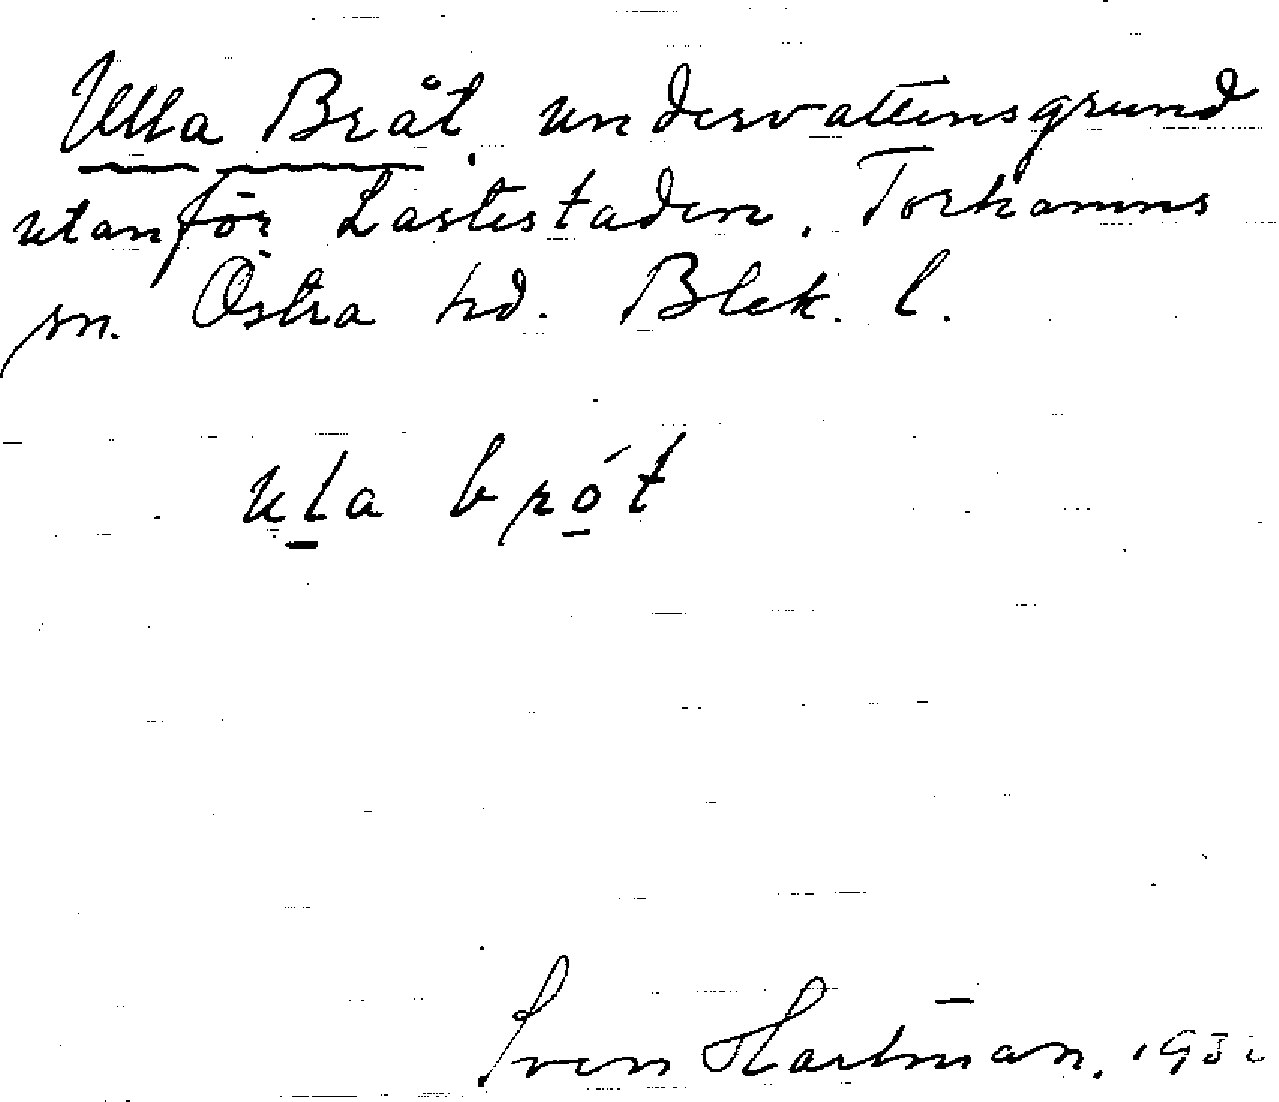 Ulla Bråt, undervattensgrund
utanför Lastestaden, Torhamns
sn. Östra hd. Blek. l.
ula brót
Sven Hartman,